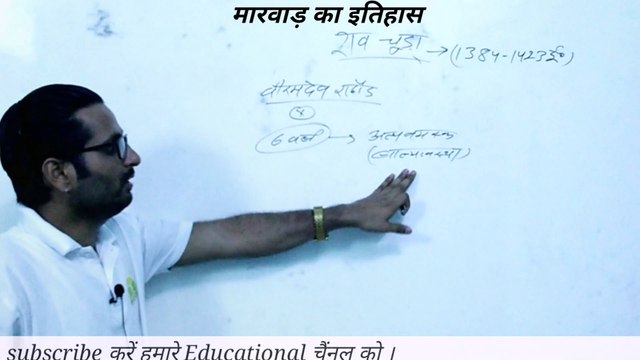 मारवाड़ का इतिहास
राव चूड़ा → (1384-1423ई०)
वीरमदेव राठौड़
6 वर्ष → अल्पवयस्क
(बाल्यावस्था)
subscribe करें हमारे Educational चैंनल को ।